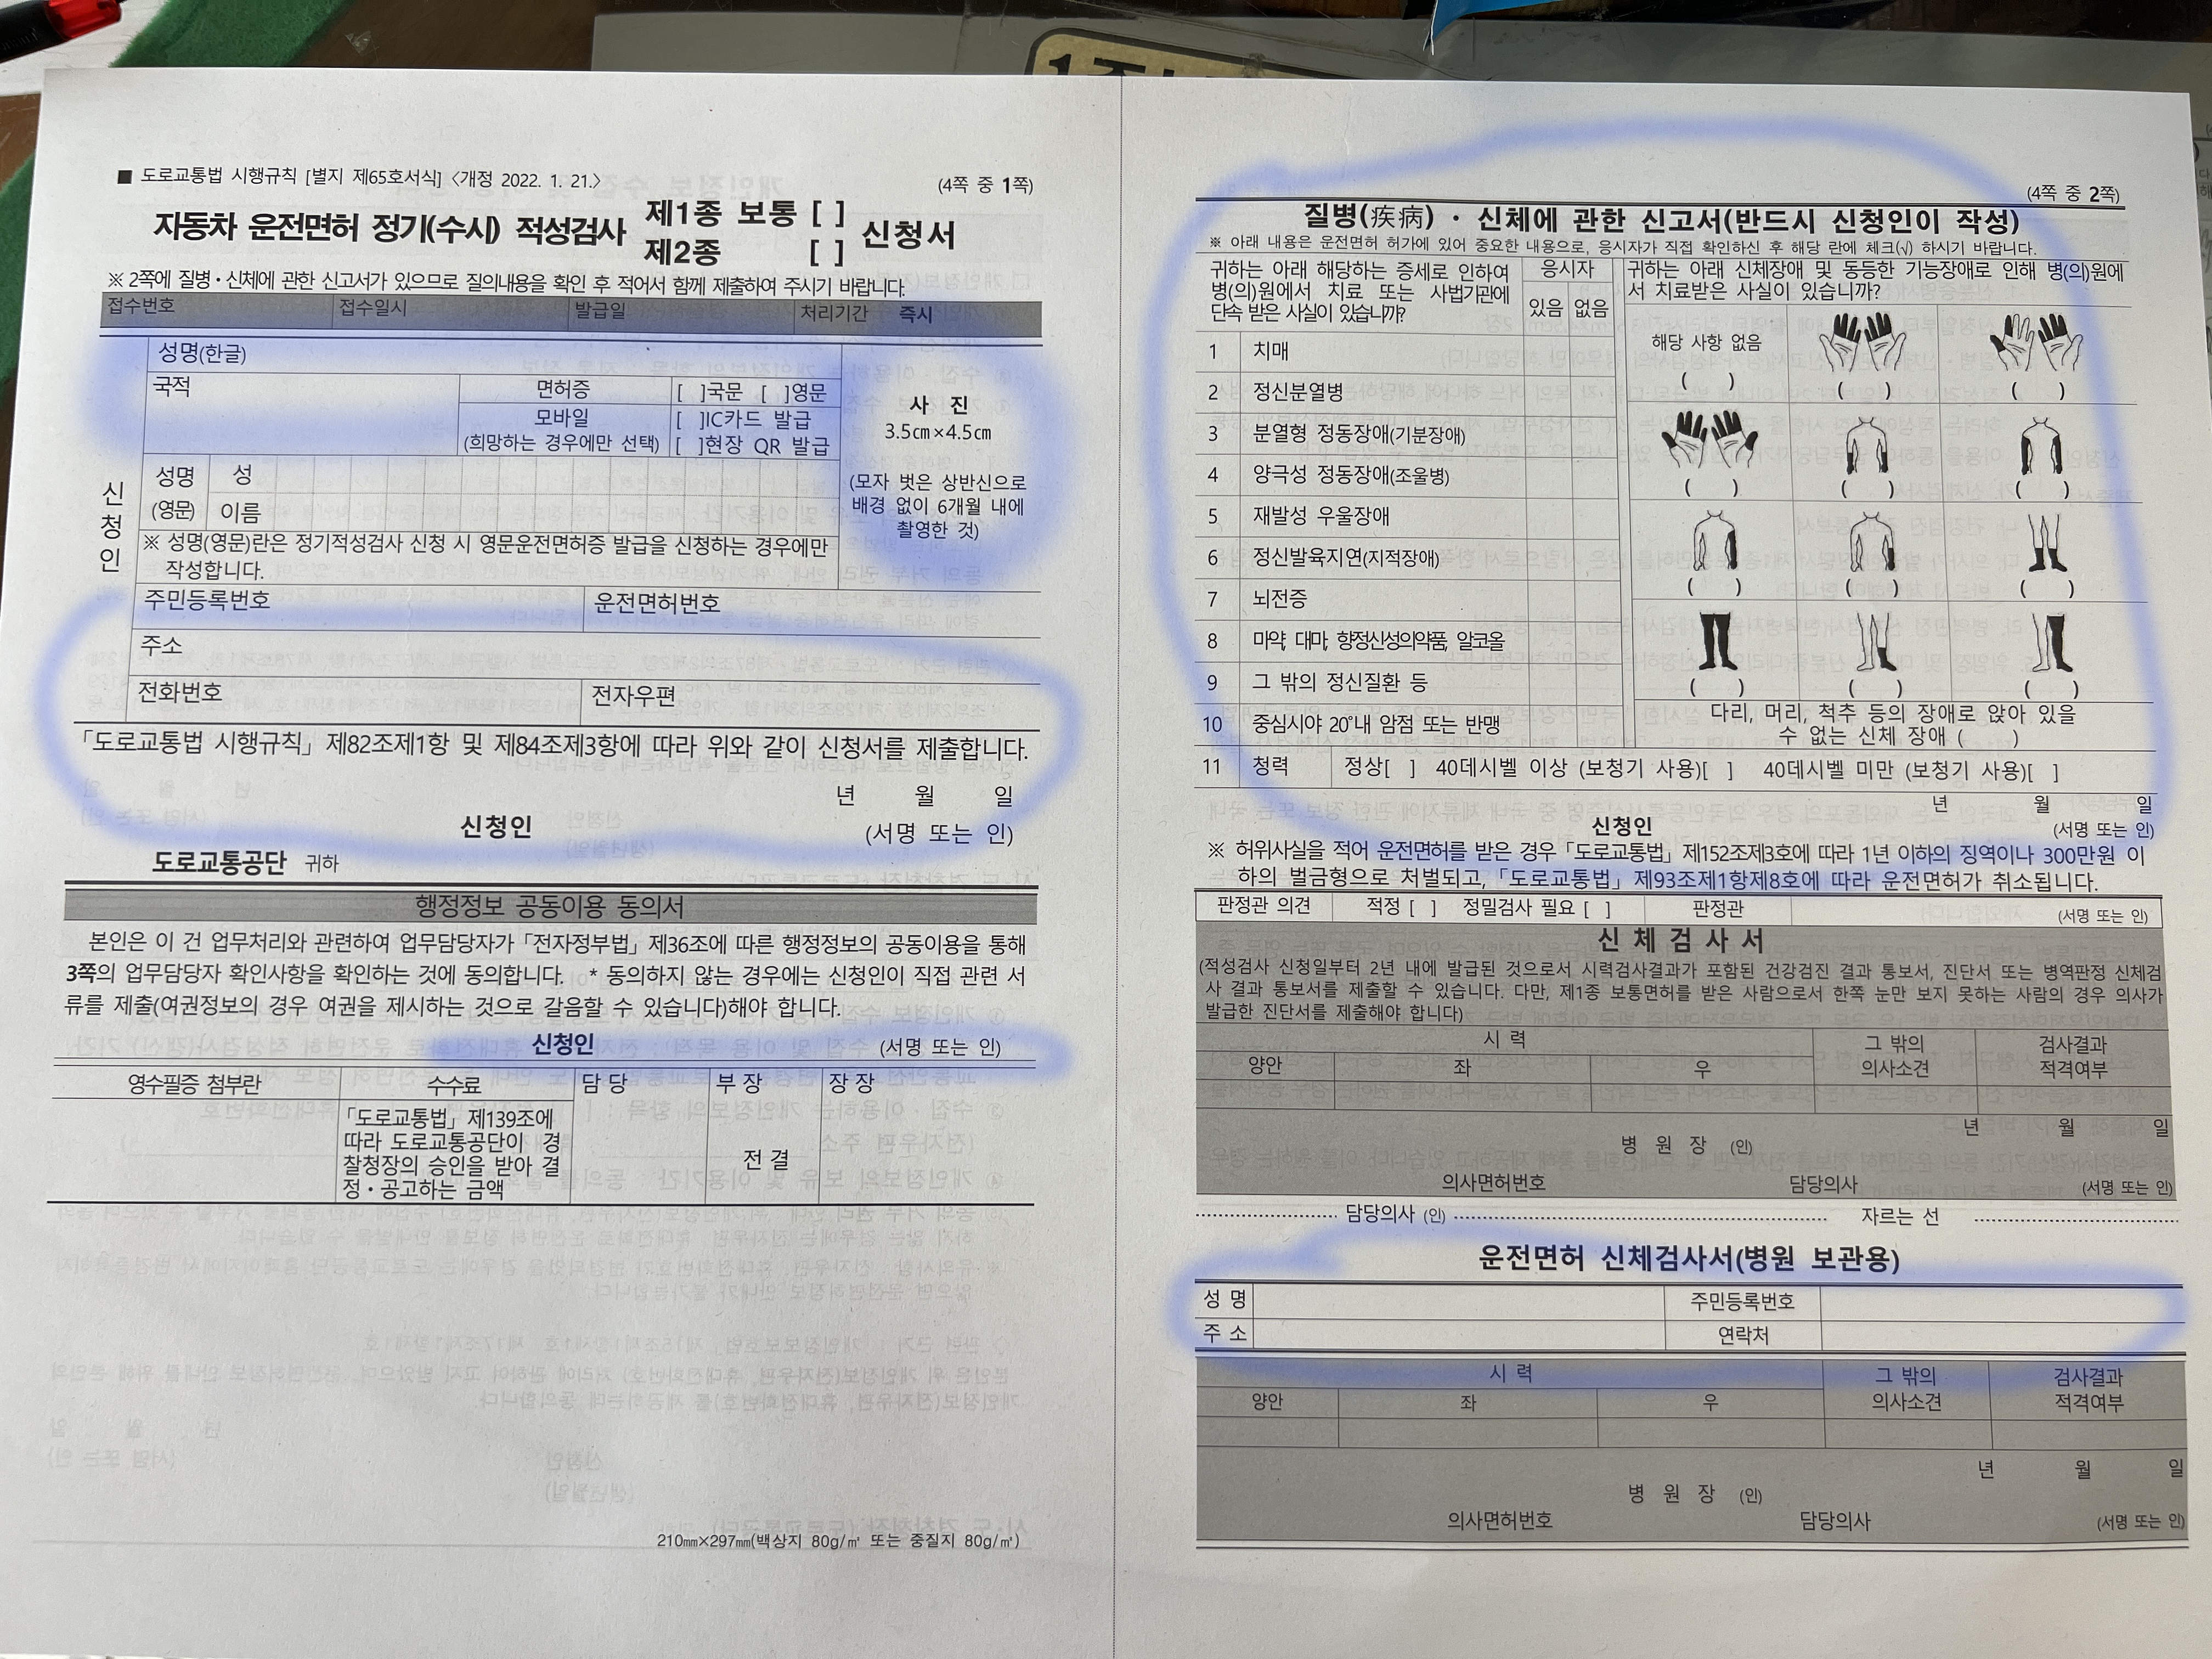 ■ 도로교통법 시행규칙 [별지 제65호서식] 〈개정 2022. 1. 21.〉
(4쪽 중 1쪽)
자동차 운전면허 정기(수시) 적성검사 제1종 보통 [ ] 제2종 [ ] 신청서
※ 2쪽에 질병·신체에 관한 신고서가 있으므로 질의내용을 확인 후 적어서 함께 제출하여 주시기 바랍니다.
접수번호 접수일시 발급일 처리기간 즉시
신청인
성명(한글)
국적
면허증 [ ]국문 [ ]영문
모바일
(희망하는 경우에만 선택)
[ ]IC카드 발급
[ ]현장 QR 발급
사 진
3.5㎝×4.5㎝
(모자 벗은 상반신으로
배경 없이 6개월 내에
촬영한 것)
성명
(영문)
성
이름
※ 성명(영문)란은 정기적성검사 신청 시 영문운전면허증 발급을 신청하는 경우에만
작성합니다.
주민등록번호 운전면허번호
주소
전화번호 전자우편
「도로교통법 시행규칙」 제82조제1항 및 제84조제3항에 따라 위와 같이 신청서를 제출합니다.
년 월 일
신청인 (서명 또는 인)
도로교통공단 귀하
행정정보 공동이용 동의서
본인은 이 건 업무처리와 관련하여 업무담당자가 「전자정부법」 제36조에 따른 행정정보의 공동이용을 통해
3쪽의 업무담당자 확인사항을 확인하는 것에 동의합니다. * 동의하지 않는 경우에는 신청인이 직접 관련 서
류를 제출(여권정보의 경우 여권을 제시하는 것으로 갈음할 수 있습니다)해야 합니다.
신청인 (서명 또는 인)
영수필증 첨부란 수수료 담 당 부 장 장 장
「도로교통법」 제139조에
따라 도로교통공단이 경
찰청장의 승인을 받아 결
정·공고하는 금액
전 결
210㎜×297㎜(백상지 80g/㎡ 또는 중질지 80g/㎡)
(4쪽 중 2쪽)
질병(疾病)·신체에 관한 신고서(반드시 신청인이 작성)
※ 아래 내용은 운전면허 허가에 있어 중요한 내용으로, 응시자가 직접 확인하신 후 해당 란에 체크(√) 하시기 바랍니다.
귀하는 아래 해당하는 증세로 인하여
병(의)원에서 치료 또는 사법기관에
단속 받은 사실이 있습니까?
응시자
있음 없음
1 치매
2 정신분열병
3 분열형 정동장애(기분장애)
4 양극성 정동장애(조울병)
5 재발성 우울장애
6 정신발육지연(지적장애)
7 뇌전증
8 마약, 대마, 향정신성의약품, 알코올
9 그 밖의 정신질환 등
10 중심시야 20°내 암점 또는 반맹
귀하는 아래 신체장애 및 동등한 기능장애로 인해 병(의)원에
서 치료받은 사실이 있습니까?
해당 사항 없음
( ) ( ) ( )
( ) ( ) ( )
( ) ( ) ( )
( ) ( ) ( )
다리, 머리, 척추 등의 장애로 앉아 있을
수 없는 신체 장애 ( )
11 청력 정상[ ] 40데시벨 이상 (보청기 사용)[ ] 40데시벨 미만 (보청기 사용)[ ]
년 월 일
신청인 (서명 또는 인)
※ 허위사실을 적어 운전면허를 받은 경우 「도로교통법」 제152조제3호에 따라 1년 이하의 징역이나 300만원 이
하의 벌금형으로 처벌되고, 「도로교통법」 제93조제1항제8호에 따라 운전면허가 취소됩니다.
판정관 의견 적정 [ ] 정밀검사 필요 [ ] 판정관 (서명 또는 인)
신 체 검 사 서
(적성검사 신청일부터 2년 내에 발급된 것으로서 시력검사결과가 포함된 건강검진 결과 통보서, 진단서 또는 병역판정 신체검
사 결과 통보서를 제출할 수 있습니다. 다만, 제1종 보통면허를 받은 사람으로서 한쪽 눈만 보지 못하는 사람의 경우 의사가
발급한 진단서를 제출해야 합니다)
시 력
양안 좌 우
그 밖의
의사소견
검사결과
적격여부
년 월 일
병 원 장 (인)
의사면허번호 담당의사 (서명 또는 인)
담당의사 (인) 자르는 선
운전면허 신체검사서(병원 보관용)
성 명 주민등록번호
주 소 연락처
시 력
양안 좌 우
그 밖의
의사소견
검사결과
적격여부
년 월 일
병 원 장 (인)
의사면허번호 담당의사 (서명 또는 인)